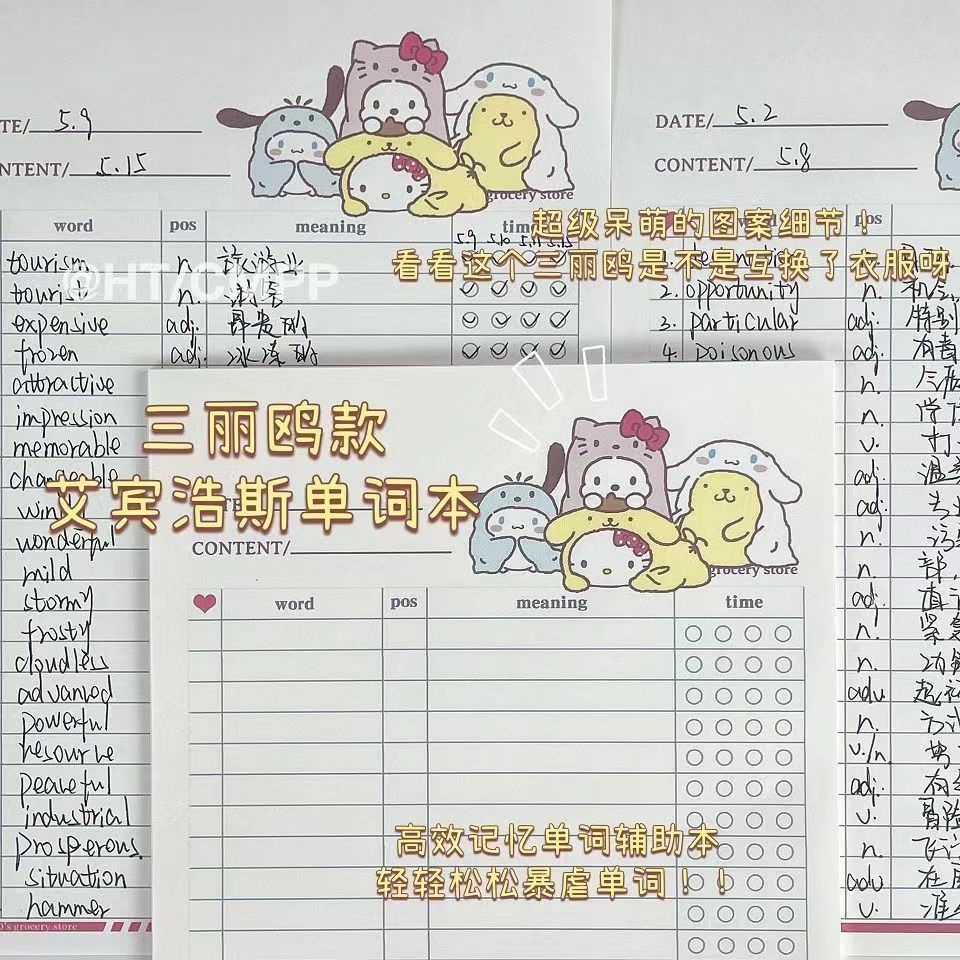 TE/ 5.9
NTENT/ 5.15
DATE/ 5.2
CONTENT/ 5.8
grocery store
超级呆萌的图案细节！
看看这个三丽鸥是不是互换了衣服呀
@HT/C
PP
word pos meaning tim
5.9 5.10 5.11 5.15
tourism n. 旅游业
tourist n. 游客
expensive adj. 昂贵的
frozen adj. 冰冻的
attractive
impression
memorable
changeable
win
wonderful
mild
stormy
frosty
cloudless
advanced
powerful
resource
peaceful
industrial
prosperous
situation
hammer
's grocery store
pos
2. opportunity n. 机会
3. particular adj. 特别
4. poisonous adj. 有毒
n.
n.
v. 打
adj. 温
adj. 专业
n. 污
n. 部
adj. 直
n. 紧
n. 功
adv
n. 方
v./n. 势
adj. 有
v. 冒险
n.
adv 在
v. 准
三丽鸥款
艾宾浩斯单词本
CONTENT/
grocery store
word pos meaning time
高效记忆单词辅助本
轻轻松松暴虐单词！！